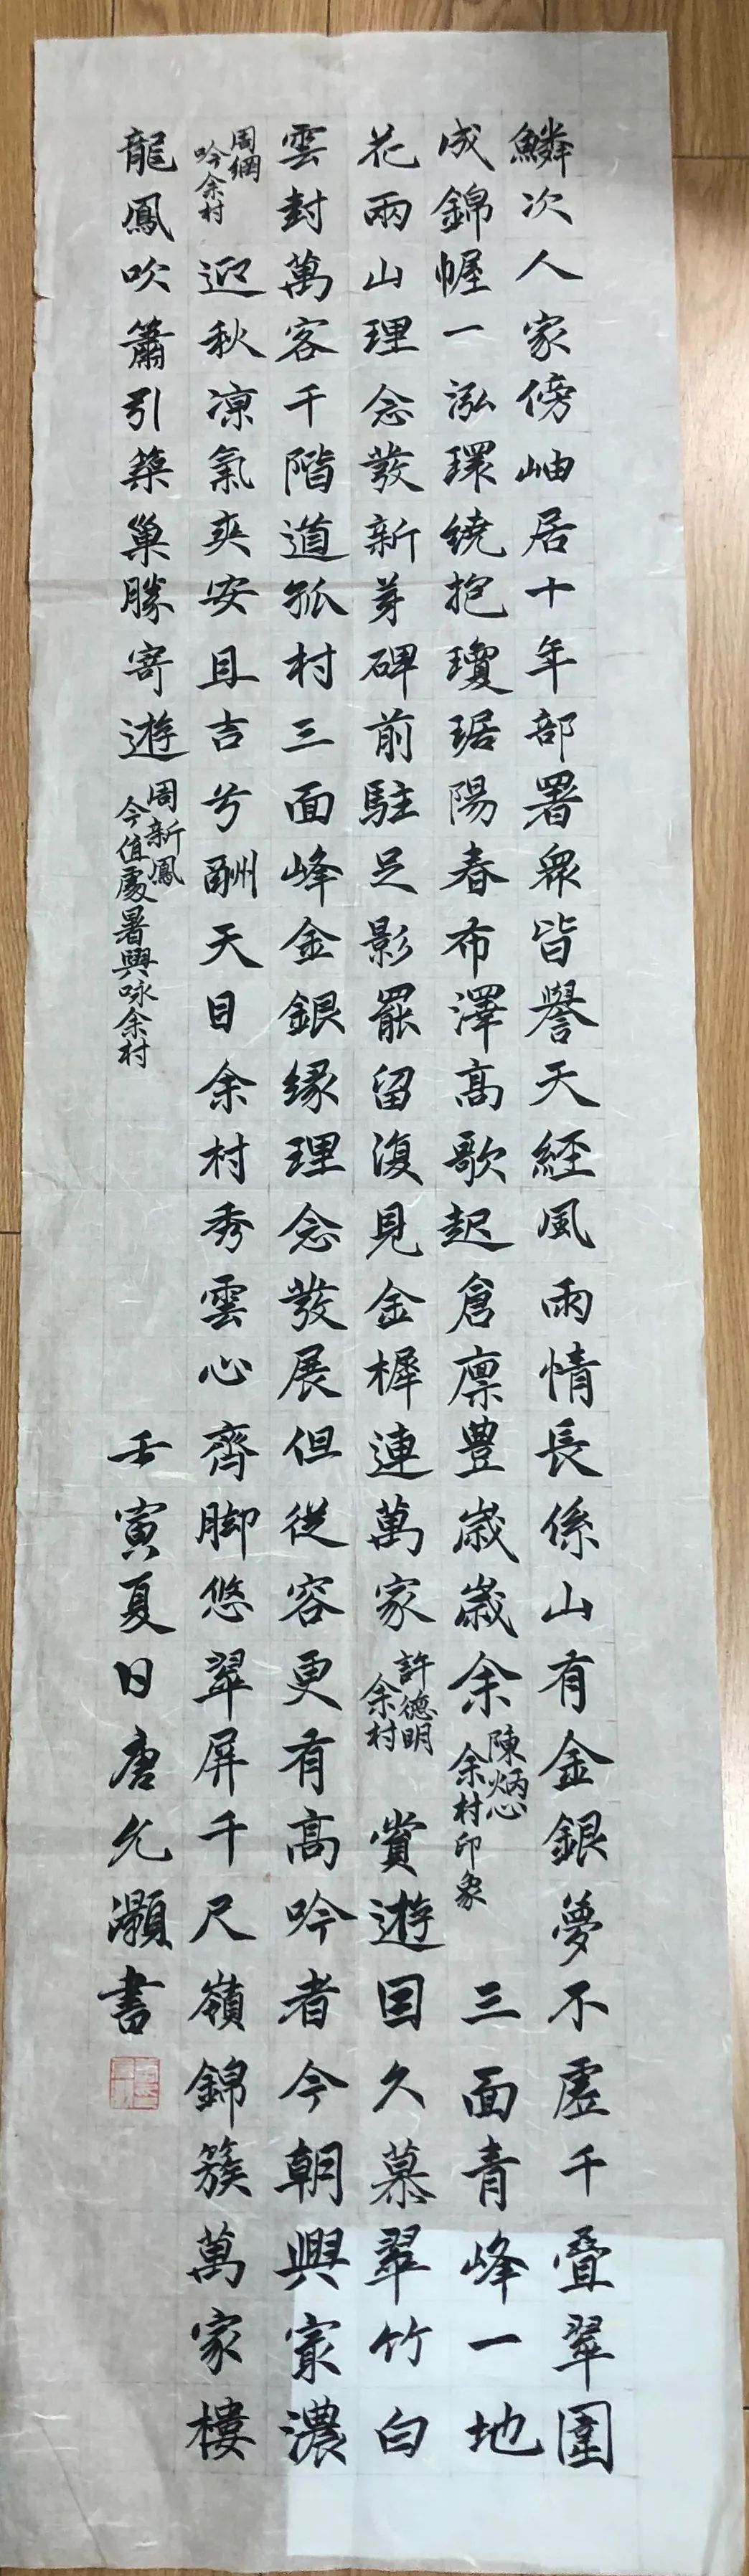 鱗次人家傍岫居十年部署衆皆譽天經風雨情長係山有金銀夢不虛千叠翠圍
成錦幄一泓環繞抱瓊琚陽春布澤高歌起倉廪豊歲歲余
陳炳心
余村印象
三面青峰一地
花兩山理念發新芽碑前駐足影罷留復見金樨連萬家
許德明
余村
賞遊回久慕翠竹白
雲封萬客千階道孤村三面峰金銀緣理念發展但從容更有高吟者今朝興寔濃
周綱
吟余村
迎秋凉氣爽安且吉兮酬天目余村秀雲心齊脚悠翠屏千尺嶺錦簇萬家樓
龍鳳吹簫引築巢勝寄遊
周新鳳
今值處暑興咏余村
壬寅夏日唐允灝書